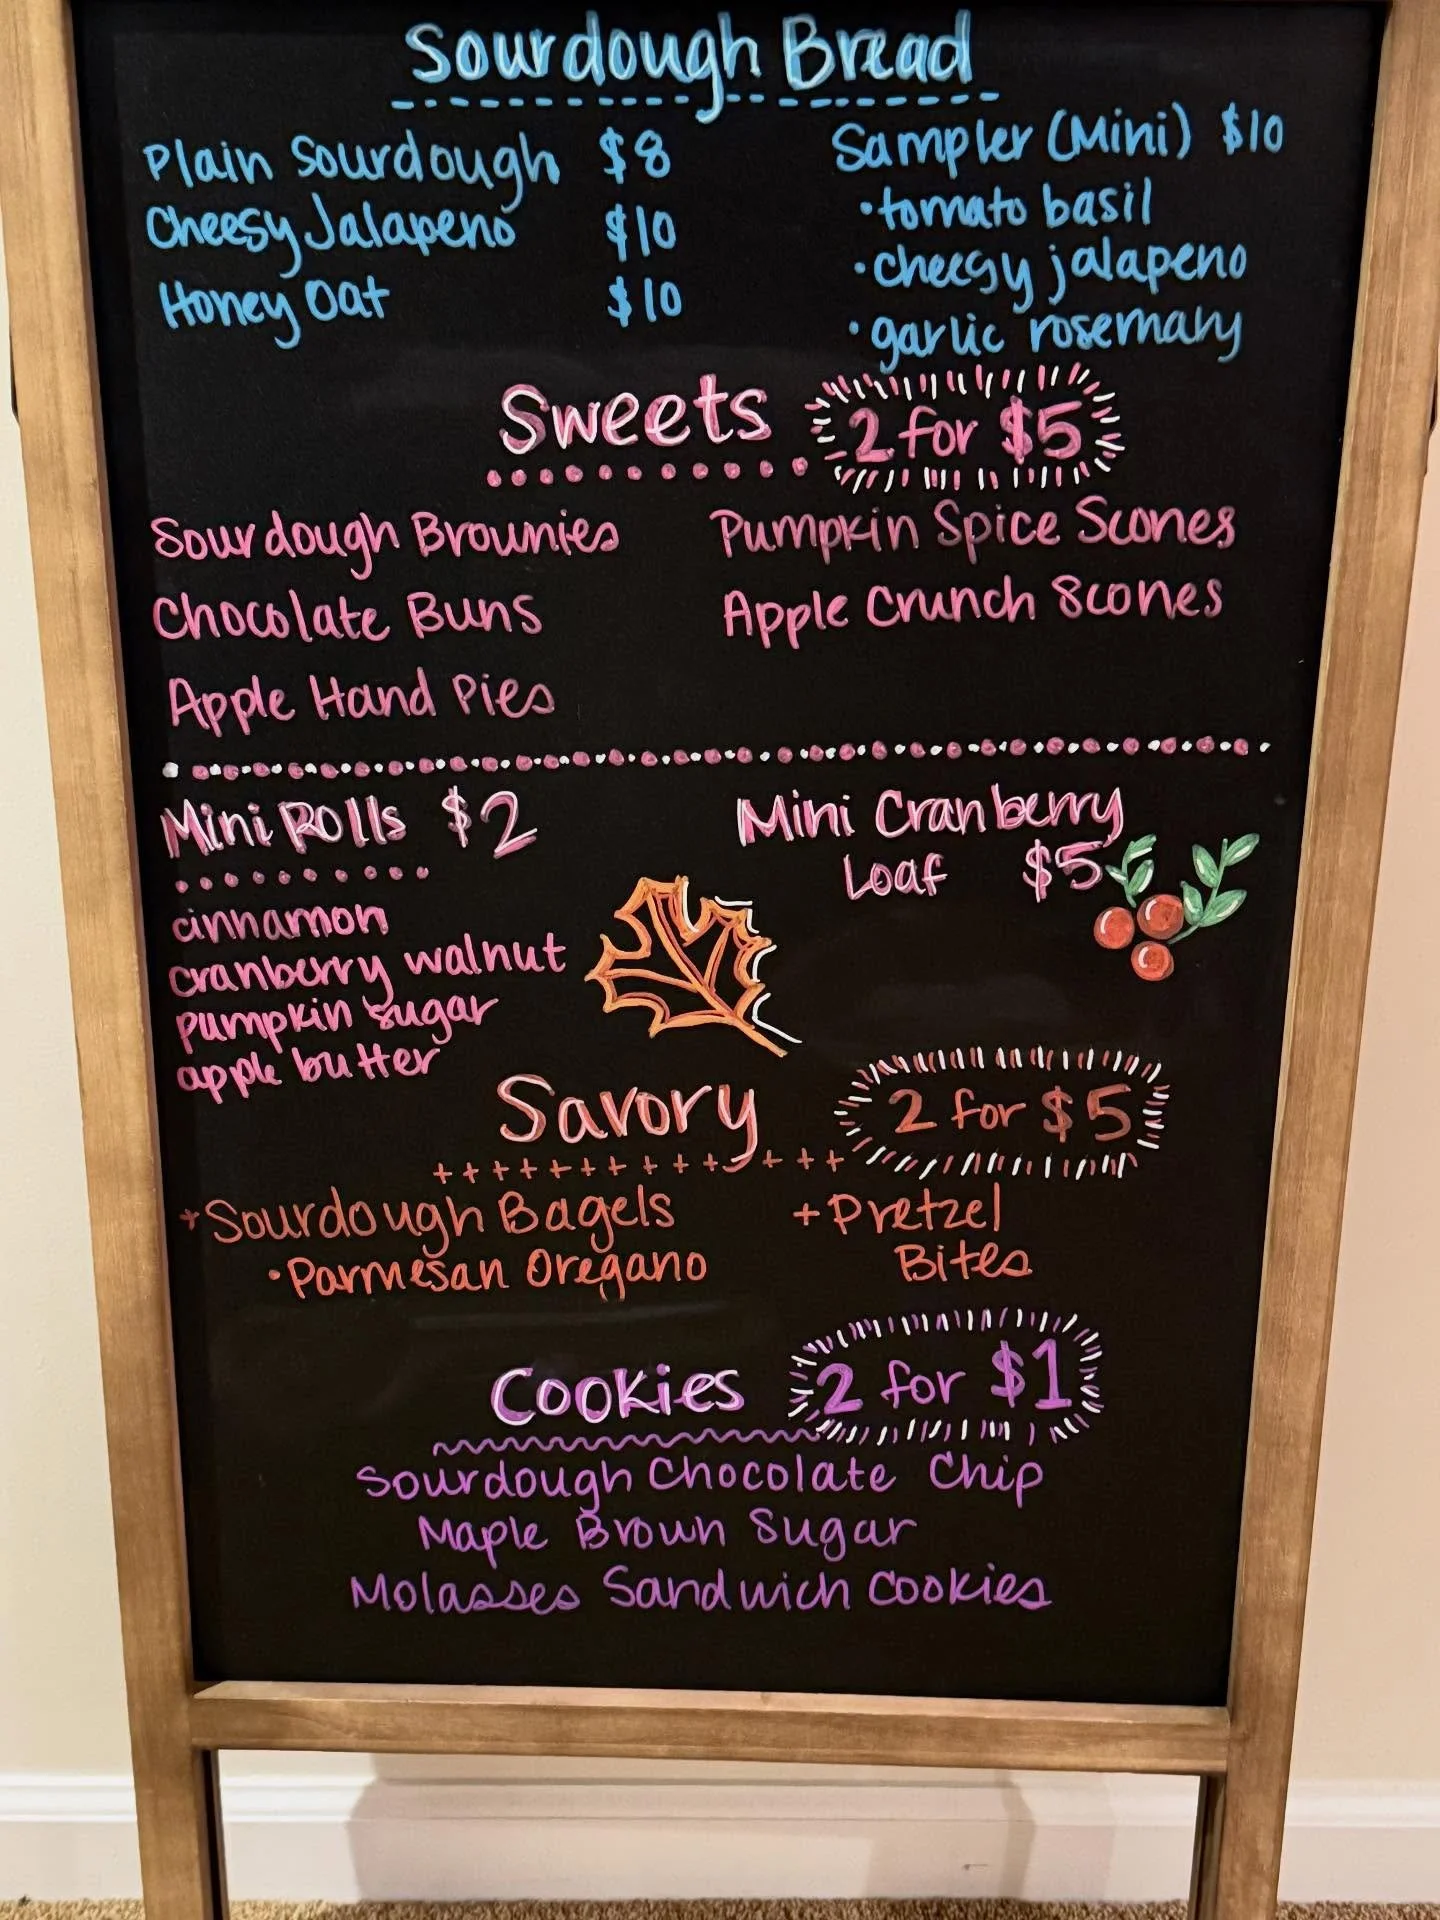 Sourdough Bread
Plain Sourdough $8
Cheesy Jalapeno $10
Honey Oat $10
Sampler (Mini) $10
• tomato basil
• cheesy jalapeno
• garlic rosemary
Sweets 2 for $5
Sourdough Brownies
Chocolate Buns
Apple Hand Pies
Pumpkin Spice Scones
Apple Crunch Scones
Mini Rolls $2
cinnamon
cranberry walnut
pumpkin sugar
apple butter
Mini Cranberry
Loaf $5
Savory 2 for $5
+ Sourdough Bagels
• Parmesan Oregano
+ Pretzel
Bites
Cookies 2 for $1
Sourdough Chocolate Chip
Maple Brown Sugar
Molasses Sandwich Cookies